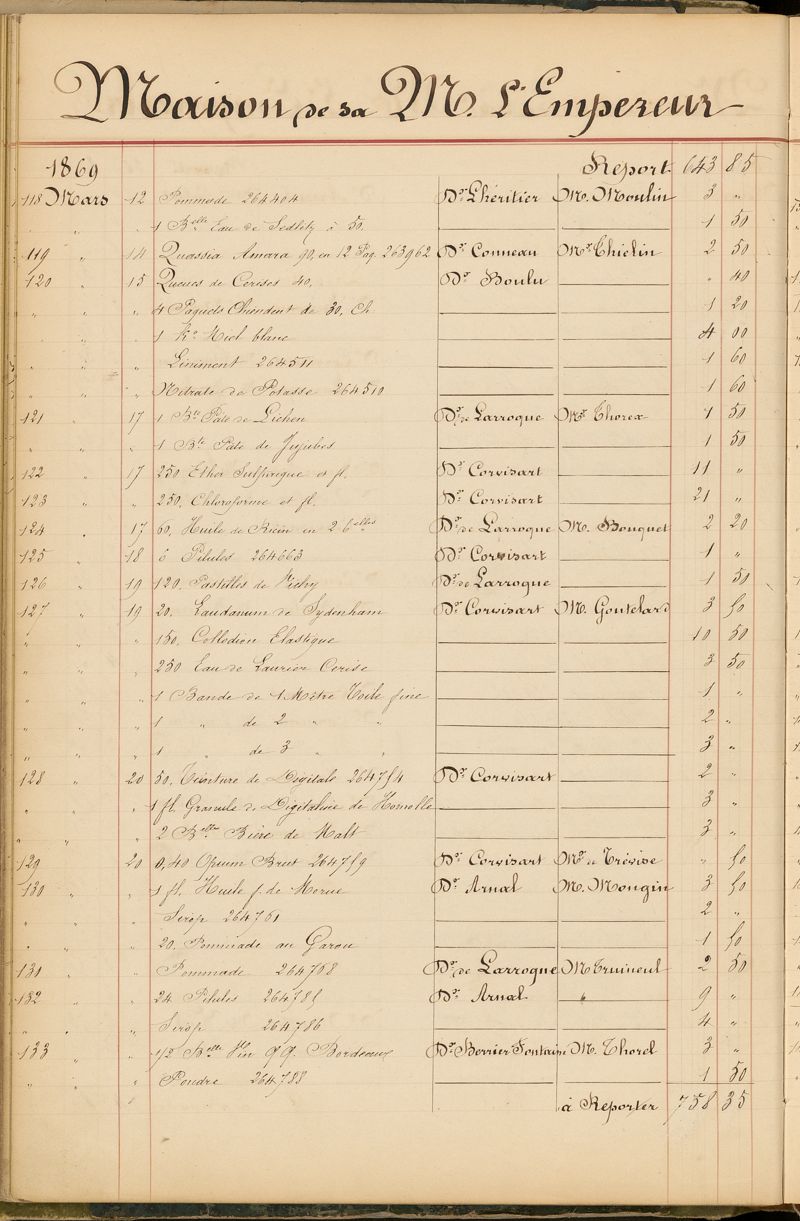 Maison de sa M. L'Empereur
1869 Report 643 85
118 Mars 12 Pommade 264404 Dr. Lhéritier M. Moulin 3 "
" " " 1 Blle Eau de Sedlitz à 50. 1 50
119 " 14 Quassia Amara 90, en 12 Paq. 263962 Dr. Conneau Mr. Thiélin 2 50
120 " 15 Queues de Cerises 40. Dr. Boulu " 40
" " " 4 Paquets Chiendent de 30, Ch 1 20
" " " 1 Ko. Miel blanc 4 00
" " " Liniment 264511 1 60
" " " Nitrate de Potasse 264510 1 60
121 " 17 1 Bte Pâte de Lichen Dr. de Larroque Mr. Thorex 1 50
" " " 1 Bte Pâte de Jujubes 1 50
122 " 17 250 Ether Sulfurique et fl. Dr. Corvisart 11 "
123 " " 250, Chloroforme et fl. Dr. Corvisart 21 "
124 " 17 60, Huile de Ricin en 2 blles Dr. de Larroque M. Bouquet 2 20
125 " 18 6 Pilules 264663 Dr. Corvisart 1 "
126 " 19 120. Pastilles de Vichy Dr. de Larroque 1 50
127 " 19 20. Laudanum de Sydenham Dr. Corvisart M. Goutelard 3 50
" " " 150. Collodion Elastique 10 50
" " " 250 Eau de Laurier Cerise 3 50
" " " 1 Bande de 1 Mètre Toile fine 1 "
" " " 1 " de 2 " " 2 "
" " " 1 " de 3 " " 3 "
128 " 20 50. Teinture de Digitale 264754 Dr. Corvisart 2 "
" " " 1 fl. Granule de Digitaline de Homolle 3 "
" " " 2 Blles Bière de Malt 3 "
129 " 20 0,40 Opium Brut 264759 Dr. Corvisart Mr. de Trévise " 50
130 " " 1 fl. Huile f. de Morue Dr. Arnal M. Mougin 3 50
" " " Sirop 264761 2 "
" " " 20. Pommade au Garou 1 50
131 " " Pommade 264768 Dr. de Larroque M Truineul 2 50
132 " " 24 Pilules 264785 Dr. Arnal " 9 "
" " " Sirop 264786 4 "
133 " " 1/2 Blle Vin QQ Bordeaux Dr. Berrier Fontaine M. Thorel 3 "
" " " Poudre 264788 1 50
à Reporter 758 35